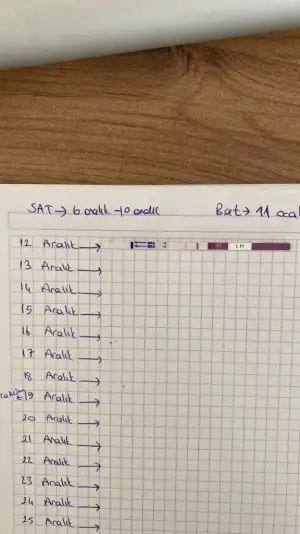 SAT → 6 aralık - 10 aralık Bat → 11 oca
12 Aralık → LH
13 Aralık →
14 Aralık →
15 Aralık →
16 Aralık →
17 Aralık →
18 Aralık →
19 Aralık →
20 Aralık →
21 Aralık →
22 Aralık →
23 Aralık →
24 Aralık →
25 Aralık →